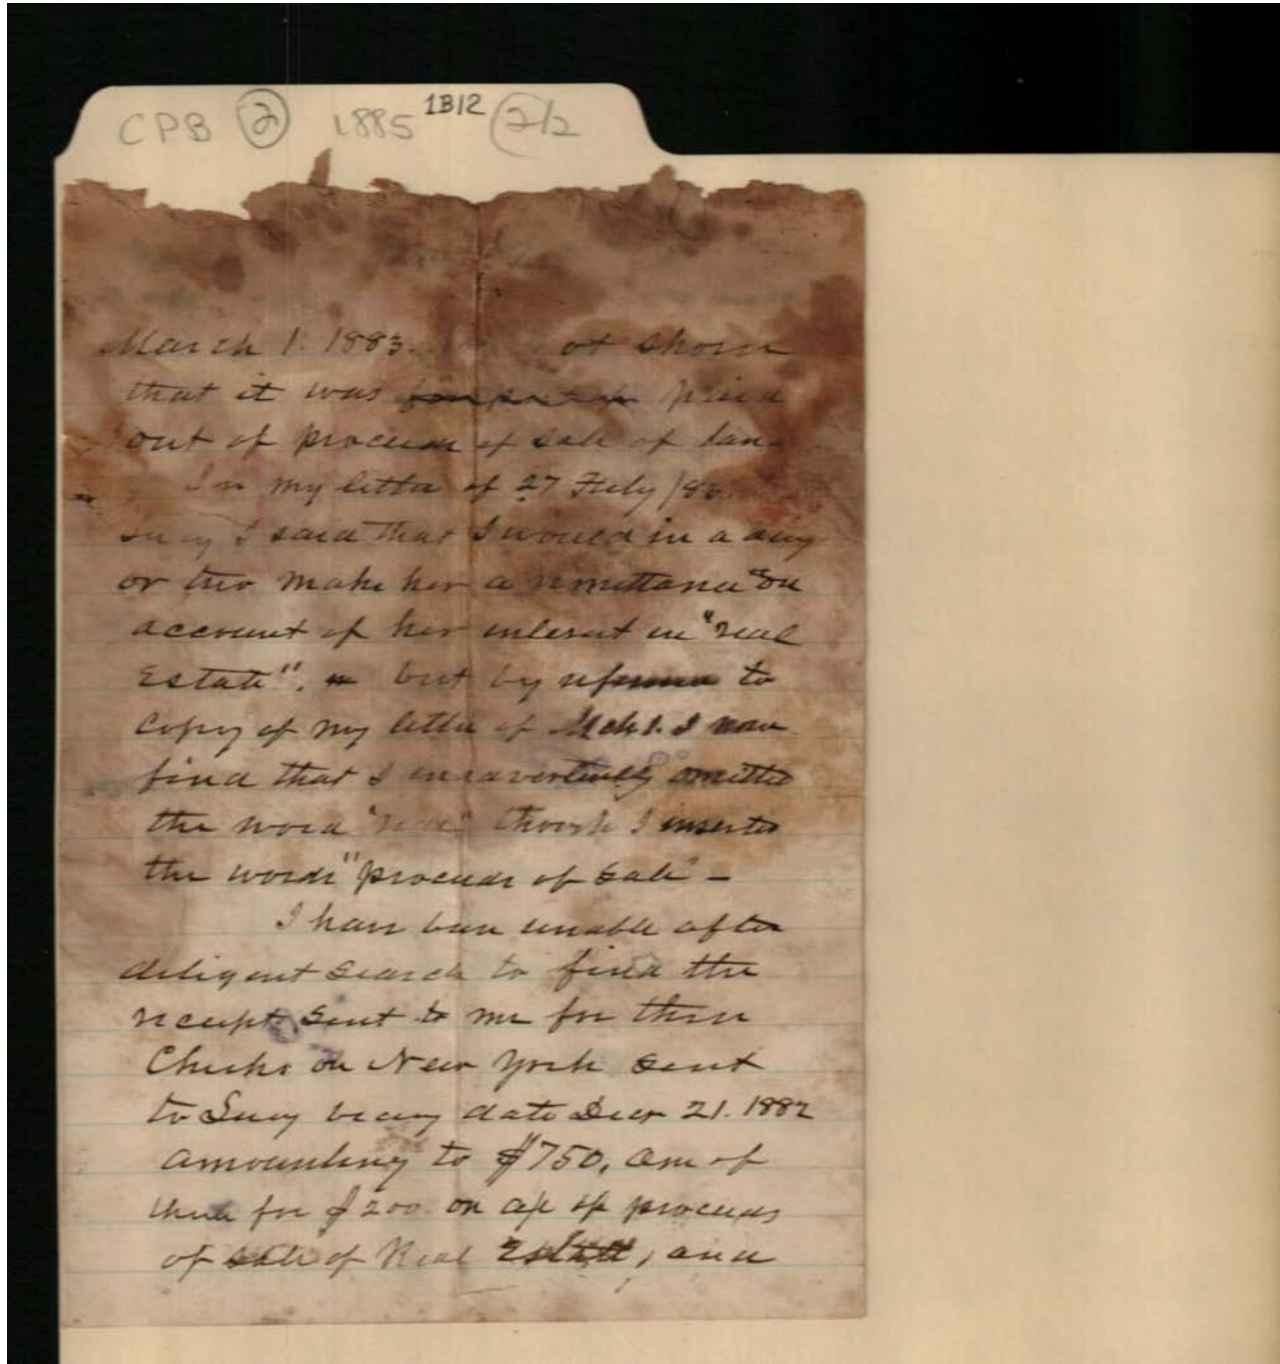 CPB 2 1885 1B12 2/2
March 1. 1883. ot shown
that it was paid
out of proceeds of sale of lan
In my letter of 27 Feby /83
Lucy I said that I would in a day
or two make her a remittance "on
account of her interest in "real
Estate". but by reference to
Copy of my letter of Mch 1. I now
find that I inadvertently omitted
the word "real" though I inserted
the words "proceeds of sale" –
I have been unable after
diligent search to find the
receipt sent to me for three
Checks on New York sent
to Lucy bearing date Decr 21. 1882
amounting to $750, one of
them for $200. on a/c of proceeds
of sale of Real Estate, and